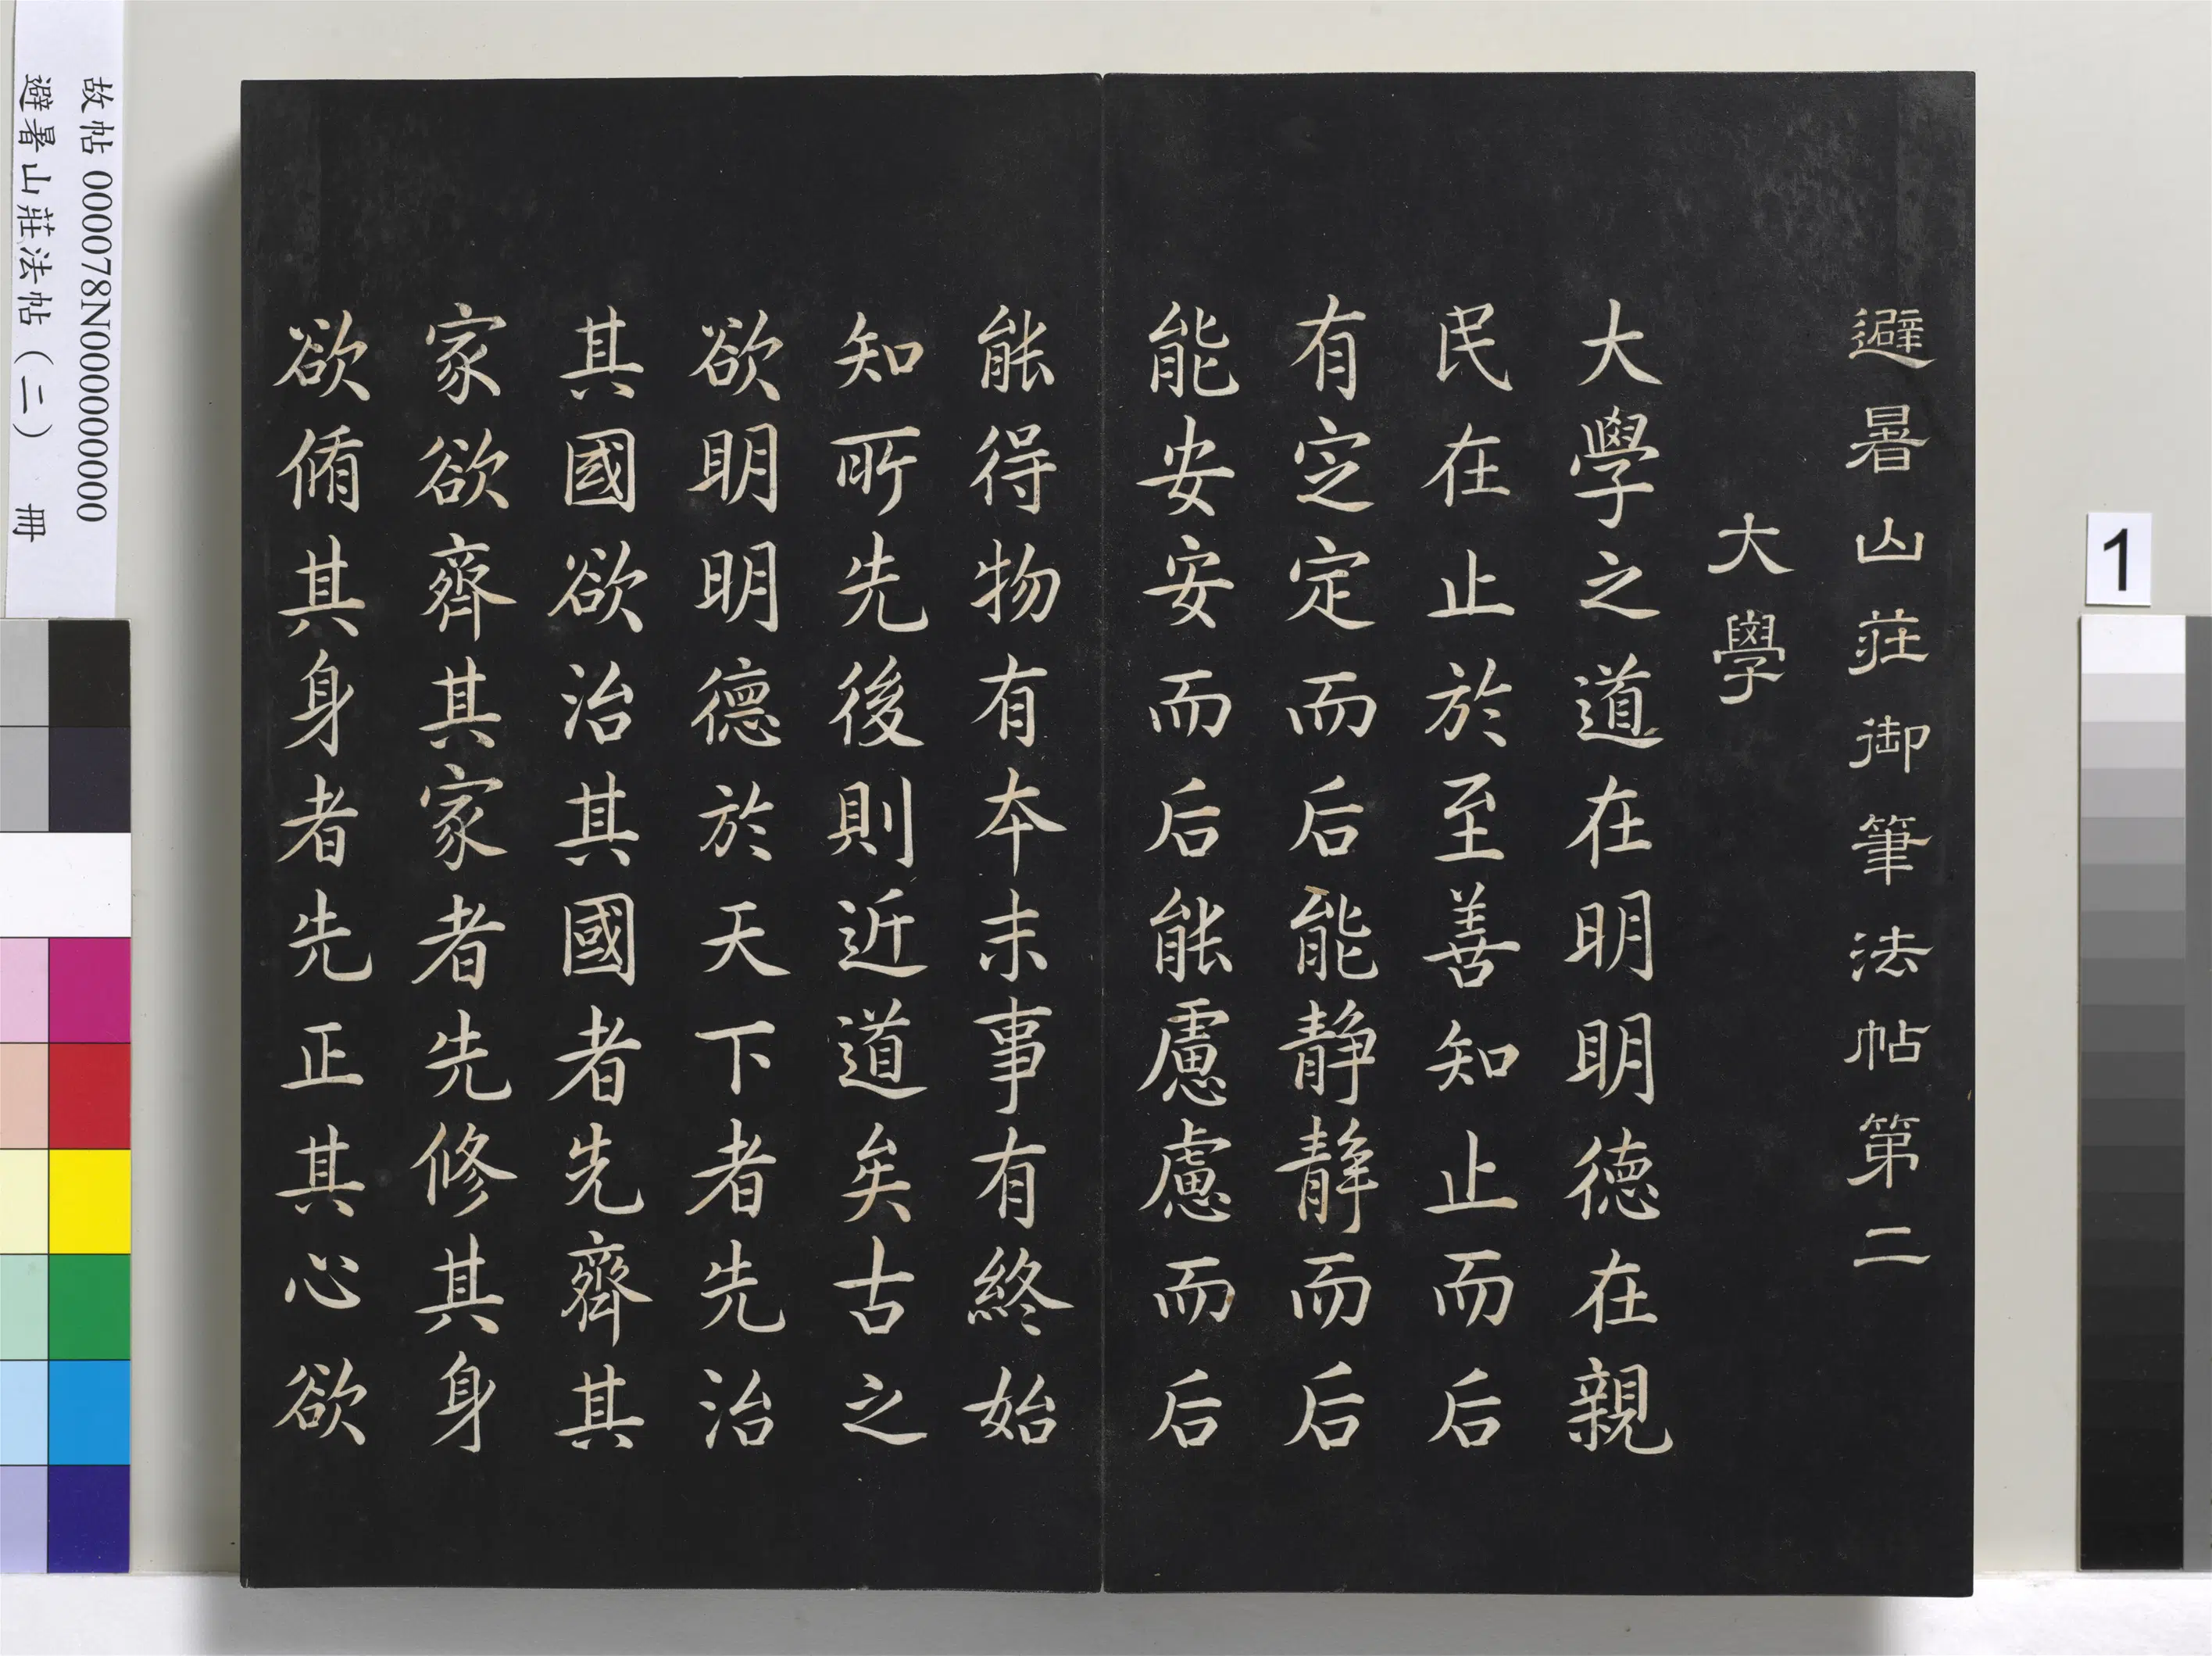 避暑山莊御筆法帖第二
大學
大學之道在明明德在親
民在止於至善知止而后
有定定而后能静静而后
能安安而后能慮慮而后
能得物有本末事有終始
知所先後則近道矣古之
欲明明德於天下者先治
其國欲治其國者先齊其
家欲齊其家者先修其身
欲脩其身者先正其心欲
故帖 000078N000000000
避暑山莊法帖(二) 冊
1